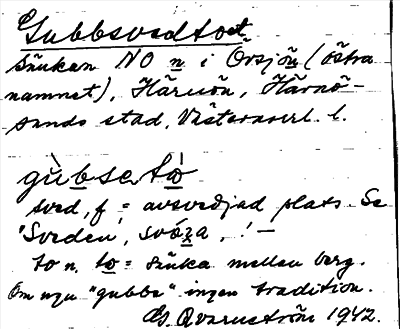 Gubbsvedtoet.
Sänkan NO n i Orsjön (östra
namnet), Härnön, Härnö-
sands stad, Västernorrl. l.
gùbseto̱
sved, f = avsvedjad plats. Se
'Sveden', !—
to n, to = sänka mellan berg.
Om ngn "gubbe" ingen tradition.
G. Qvarnström 1942.